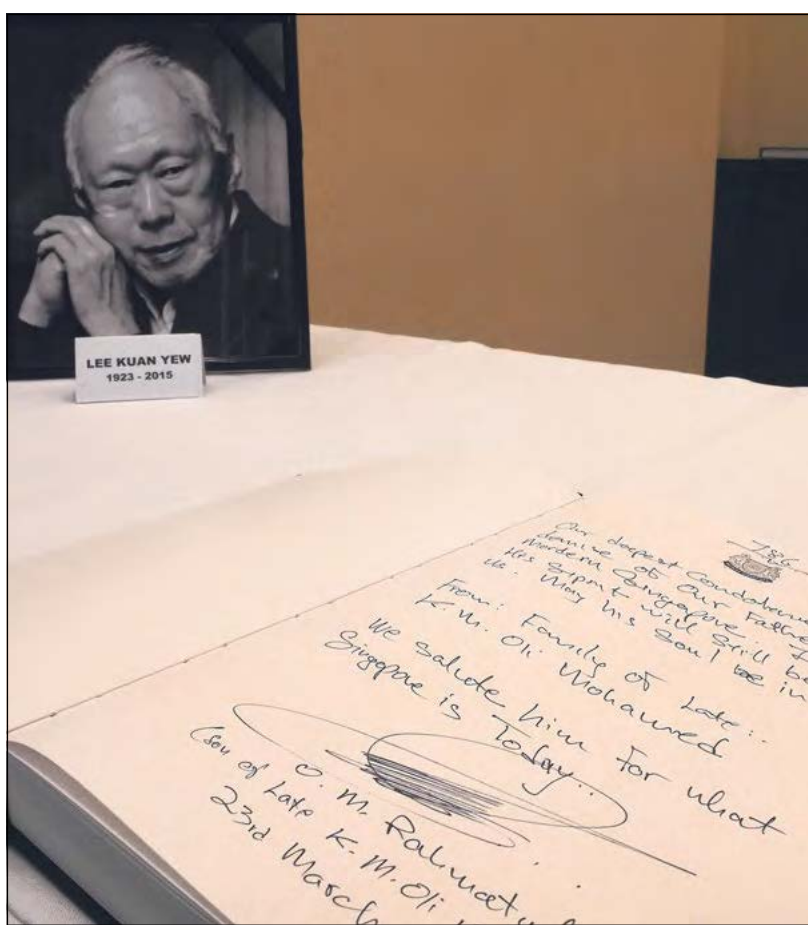 LEE KUAN YEW
1923 - 2015
786
Our deepest
demise of our Father
Mordern Singapore..
His will still be
us. May his soul be in
From: Family of Late:.
K.M. Oli Mohamed
We salute him for what
Singapore is Today..
O. M.
(son of Late K.M. Oli
23rd March